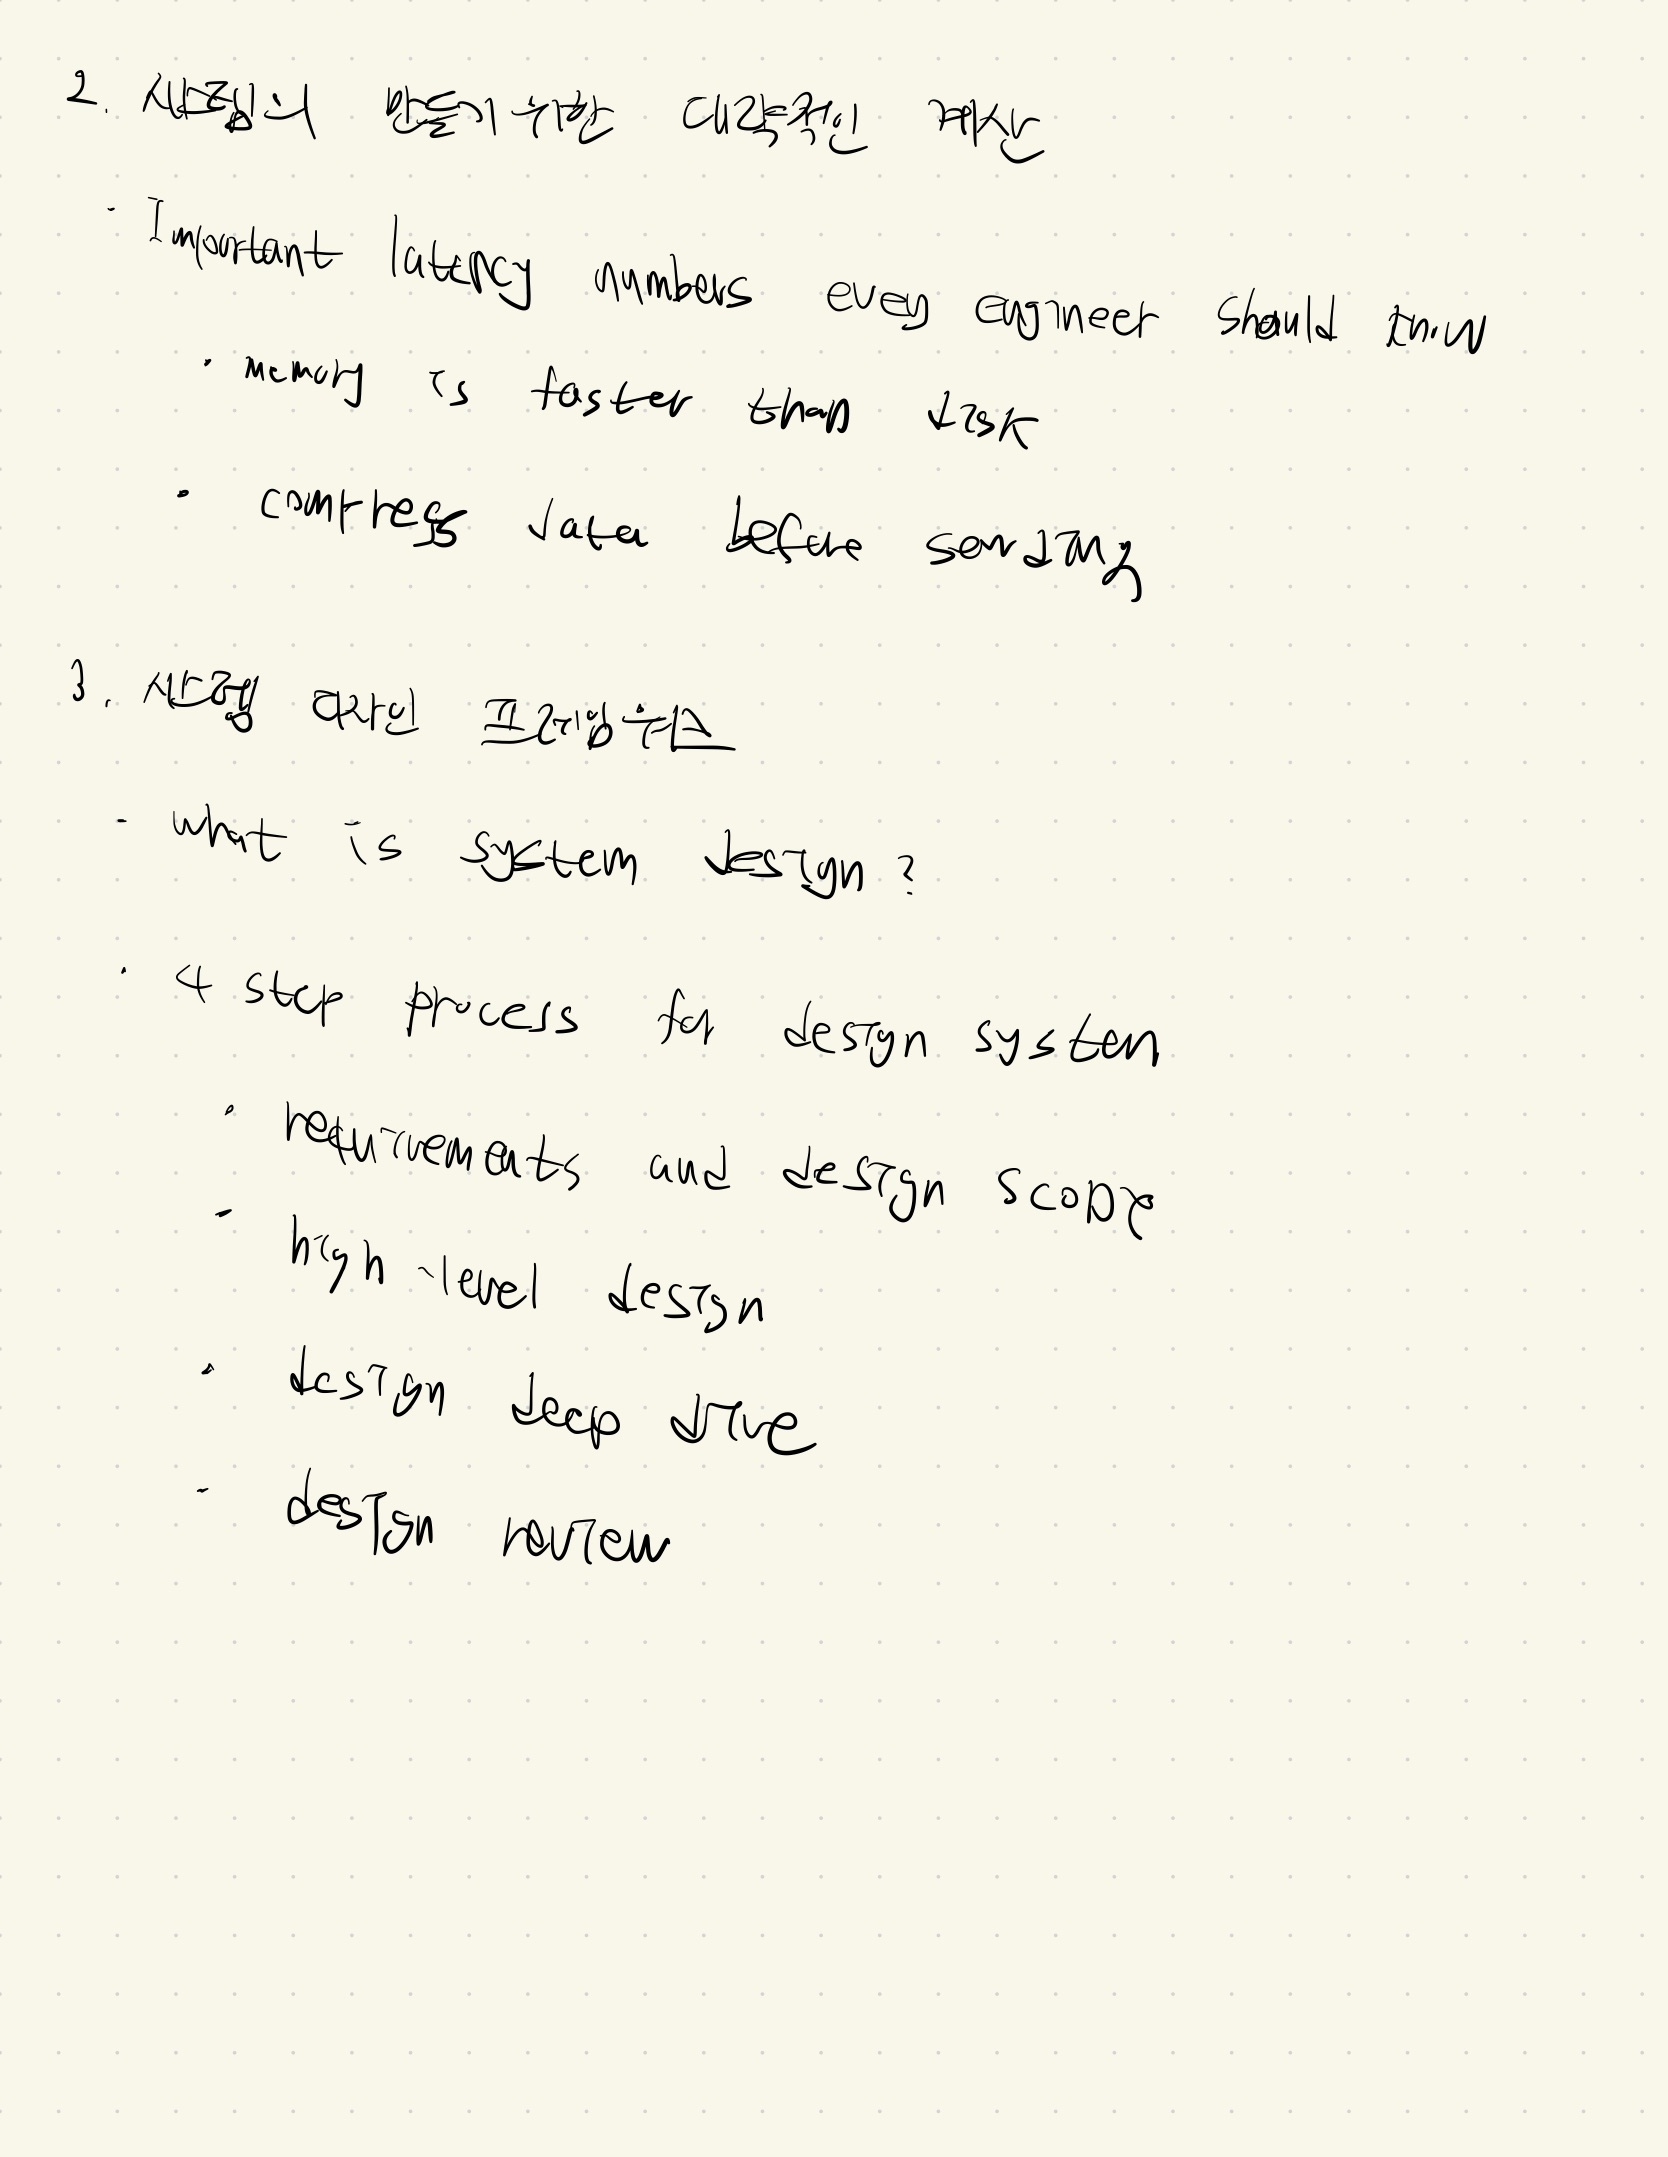 2. 시스템의 만들기 위한 대략적인 계산
· Important latency numbers every engineer should know
· memory is faster than disk
· compress data before sending
3. 시스템 디자인 프레임워크
- what is system design?
· 4 step process for design system
· requirements and design scope
- high-level design
· design deep dive
- design review